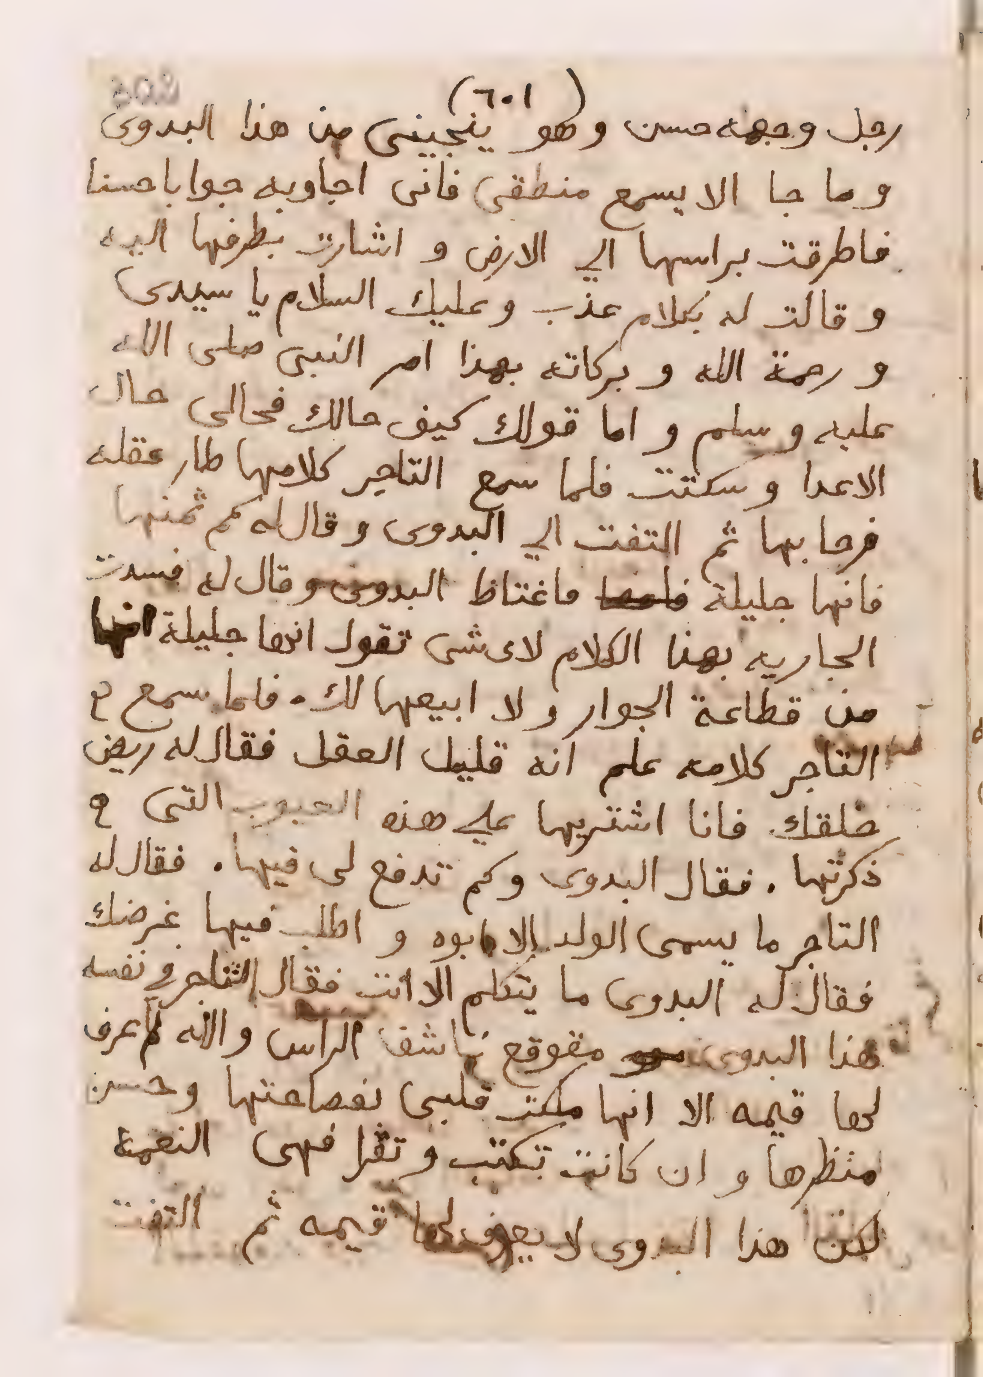 (٦٠١)
رجل وجهه حسن وهو ينجينى من هذا البدوى
و ما جا الا يسمع منطقى فانى اجاوبه جوابا حسنا
فاطرقت براسها الي الارض و اشارت بطرفها اليه
و قالت له بكلام عذب و عليك السلام يا سيدى
و رحمة الله و بركاته بهذا امر النبى صلى الله
عليه و سلم و اما قولك كيف حالك فحالى حال
الاعدا و سكتت فلما سمع التاجر كلامها طار عقله
فرحا بها ثم التفت الي البدوى و قال له كم ثمنها
فانها جليلة فاغتاظ البدوى و قال له فسدت
الجاريه بهذا الكلام لاى شى تقول انها جليلة انها
من قطاعة الجوار و لا ابيعها لك . فلما سمع
التاجر كلامه علم انه قليل العقل فقال له ريض
خلقك فانا اشتريها علي هذه العيوب التى
ذكرتها . فقال البدوى وكم تدفع لى فيها . فقال له
التاجر ما يسمى الولد الا ابوه و اطلب فيها غرضك
فقال له البدوى ما يتكلم الا انت فقال التاجر فى نفسه
هذا البدوى مقوقع ناشف الراس و الله لم اعرف
لها قيمه الا انها ملكت قلبى بفصاحتها و حسن
منظرها و ان كانت تكتب و تقرا فهى النعمة
لكن هذا البدوى لا يعرف لها قيمه ثم التفت